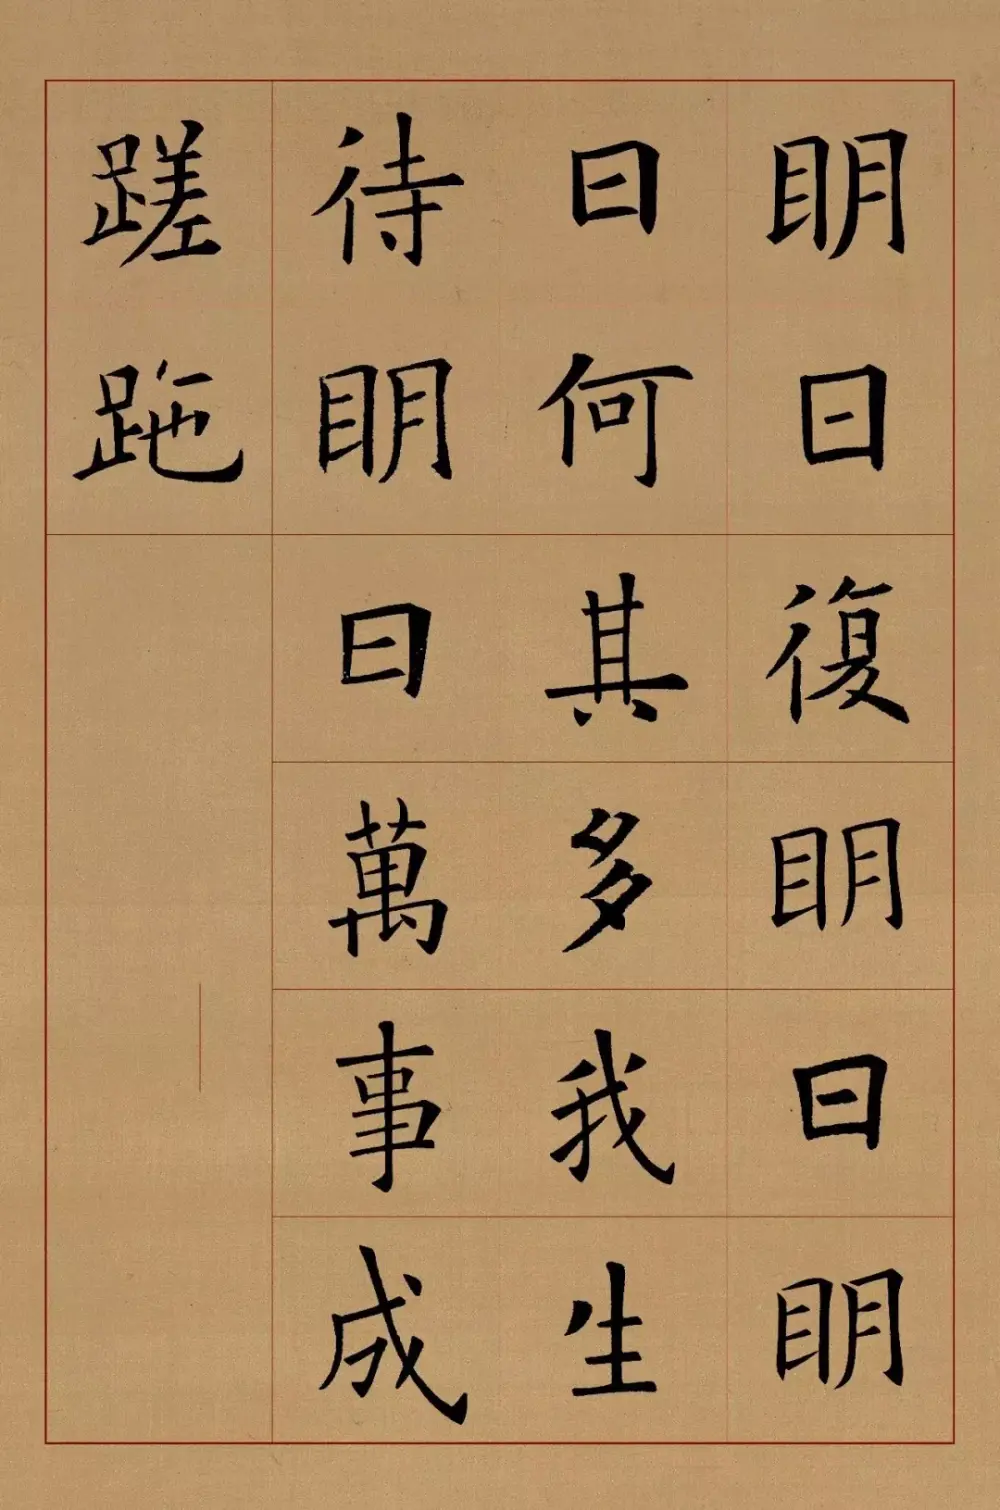 明日復明日明
日何其多我生
待明日萬事成
蹉跎